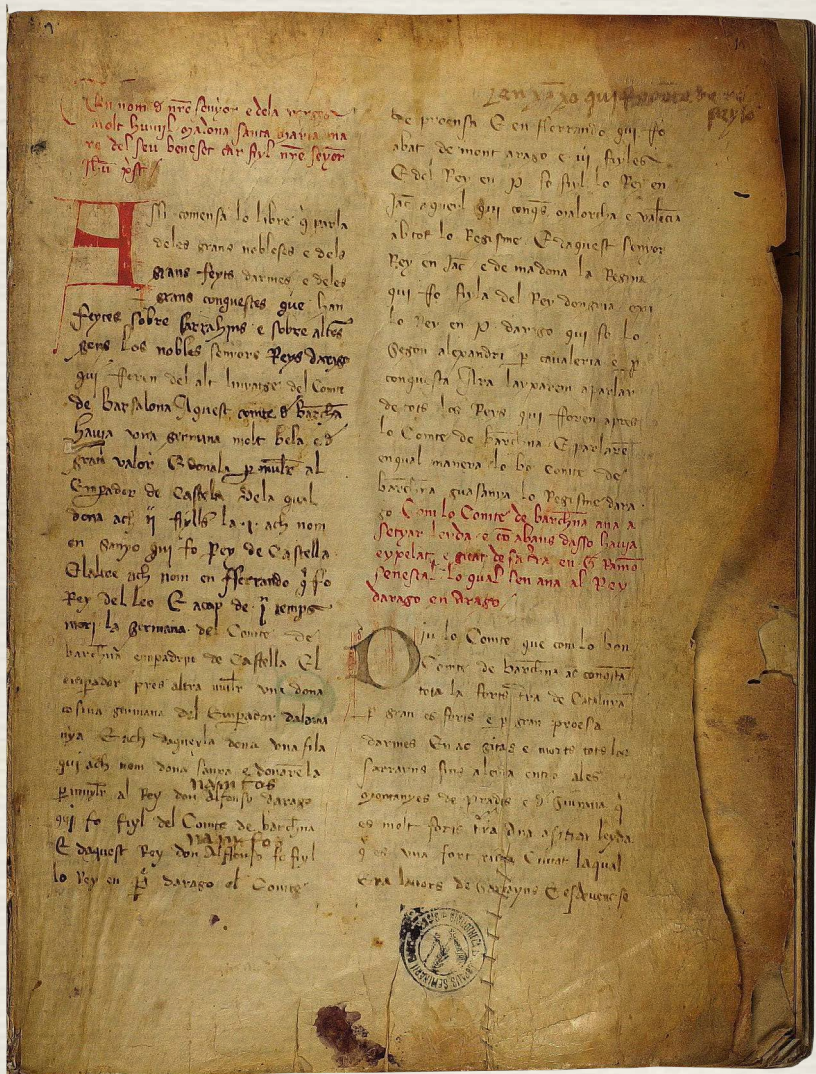 En nom de nre senyor e dela verge
molt humil madona santa maria ma
re del seu beneset car fiyl nre seyor
Jhu xpst
A
ssi comensa lo libre q parla
deles grans nobleses e dels
grans feyts darmes e deles
grans conquestes que han
feytes sobre sarrahins e sobre altes
gens los nobles senyors Reys darago
qui foren del alt linyatge del Comte
de barsalona Aquest comte d barchna
hauia vna germana molt bela e d
gran valor E donala p mulr al
Empador de Castela Dela qual
dona ach ii fiylls la .i. ach nom
en Sanxo qui fo Rey de Castella
Elaltre ach nom en fferrando q fo
Rey del leo E acap de i temps
mori la germana del Comte de
barchna empadriu de Castella El
empador pres altra mulr vna dona
cosina germana del Emperador dalama
nya E ach daquela dona vna fila
qui ach nom dona sanxa e donarela
p muylr al Rey don Alfonso darago
qui fo fiyl del Comte de barchna
E daquest Rey don Alfonso fo fiyl
lo Rey en P darago el Comte
de proensa E en fferrando qui fo
abat de mont arago e iii fiyles
E del Rey en P fo fiyl lo Rey en
Jac aqueyl qui conqs malorcha e valecia
ab tot lo Regisme E daquest senyor
Rey en Jac e de madona la Regina
qui fo fiyla del Rey dongria exi
lo Rey en P darago qui fo lo
segon alexandri p caualeria e p
conquesta Ara layxarem aparlar
de tots los Reys qui foren apres
lo Comte de barchna E parlare
en qual manera lo bo Comte de
barchna guasanya lo Regisme dara
go Com lo Comte de barchna ana a
setyar leyda e co abans dasso hauia
expelat e gitat de sa tra en G Ramo
senescal lo qual sen ana al Rey
darago en Arago
D
iu lo Comte que com lo bon
Comte de barchna ac conqista
tota la fort tra de Catalunya
p gran esforts e p gran proesa
darmes En ac gitats e morts tots los
sarrayns fins alcuna entro ales
montanyes de prades e d Siurana q
es molt forts tra Ana asitiar leyda
q es vna fort richa Ciutat la qual
era lauors de Sarrayns E esdeuenc se